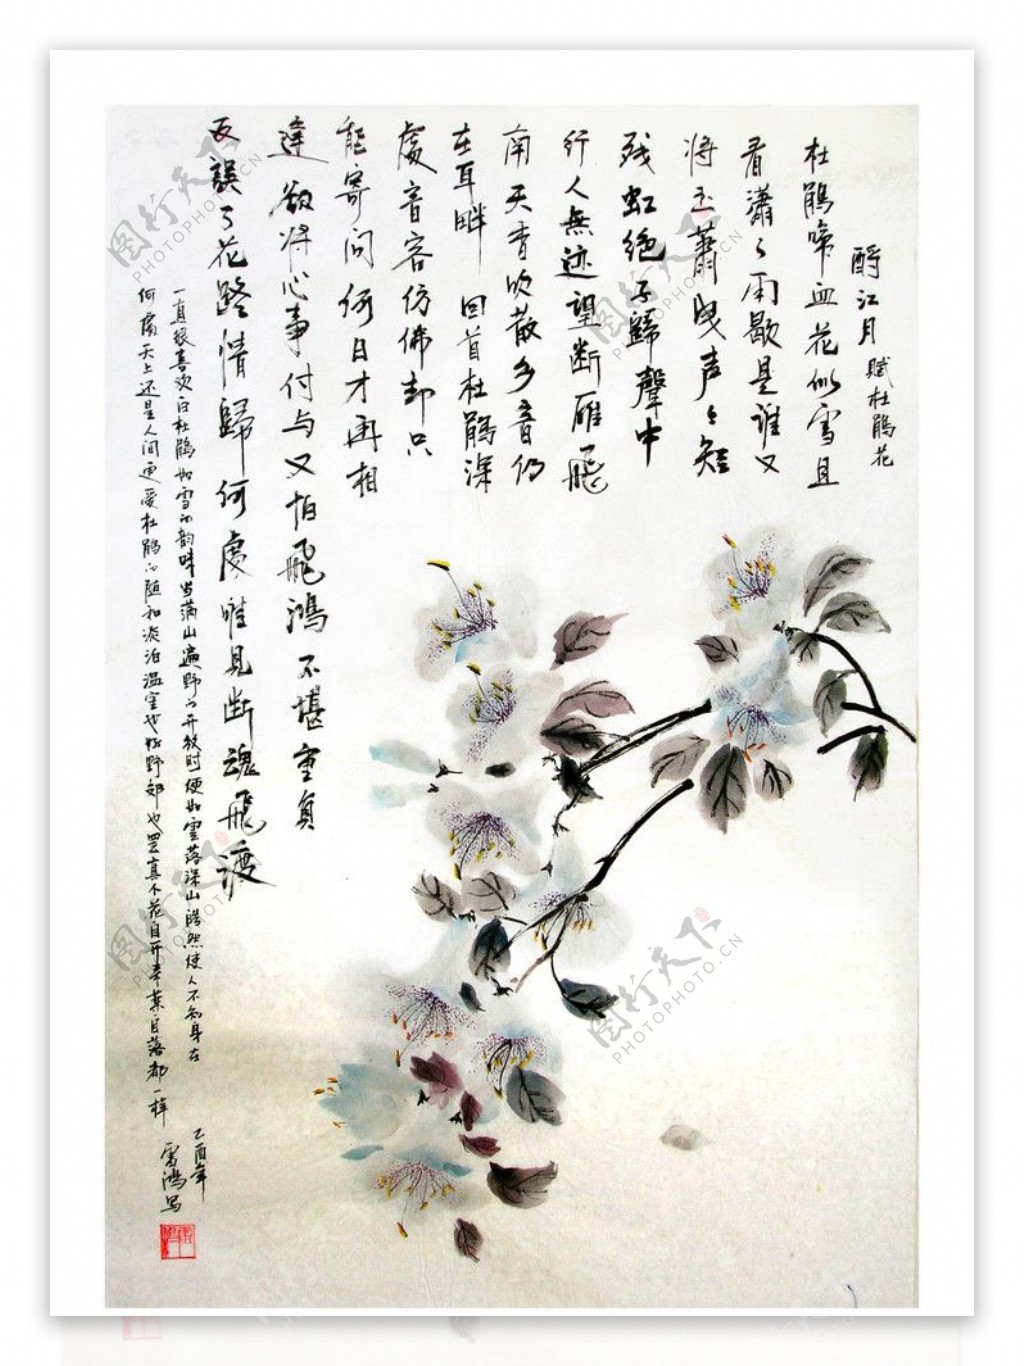 酹江月 赋杜鹃花
杜鹃啼血花似雪且
看潇々雨歇是谁又
将玉萧曳声々短
残虹绝子歸聲中
行人無迹望断雁飛
南天香吹散乡音仍
在耳畔 回首杜鹃深
處音容仿佛却只
能寄问何日才再相
逢敛将心事付与又怕飛鸿不堪重負
反誤了花路情歸何處唯見断魂飛渡
一直很喜欢白杜鹃如雪的韵味当满山遍野的开放时便如雲落深山浩然使人不知身在
何處天上还是人间更爱杜鹃的随和淡泊温室也好野郊也罢真个花自开来葉自落都一样
乙酉年
雷鸿写
图行天下
PHOTOPHOTO.CN
图行天下
PHOTOPHOTO.CN
图行天下
PHOTOPHOTO.CN
图行天下
PHOTOPHOTO.CN